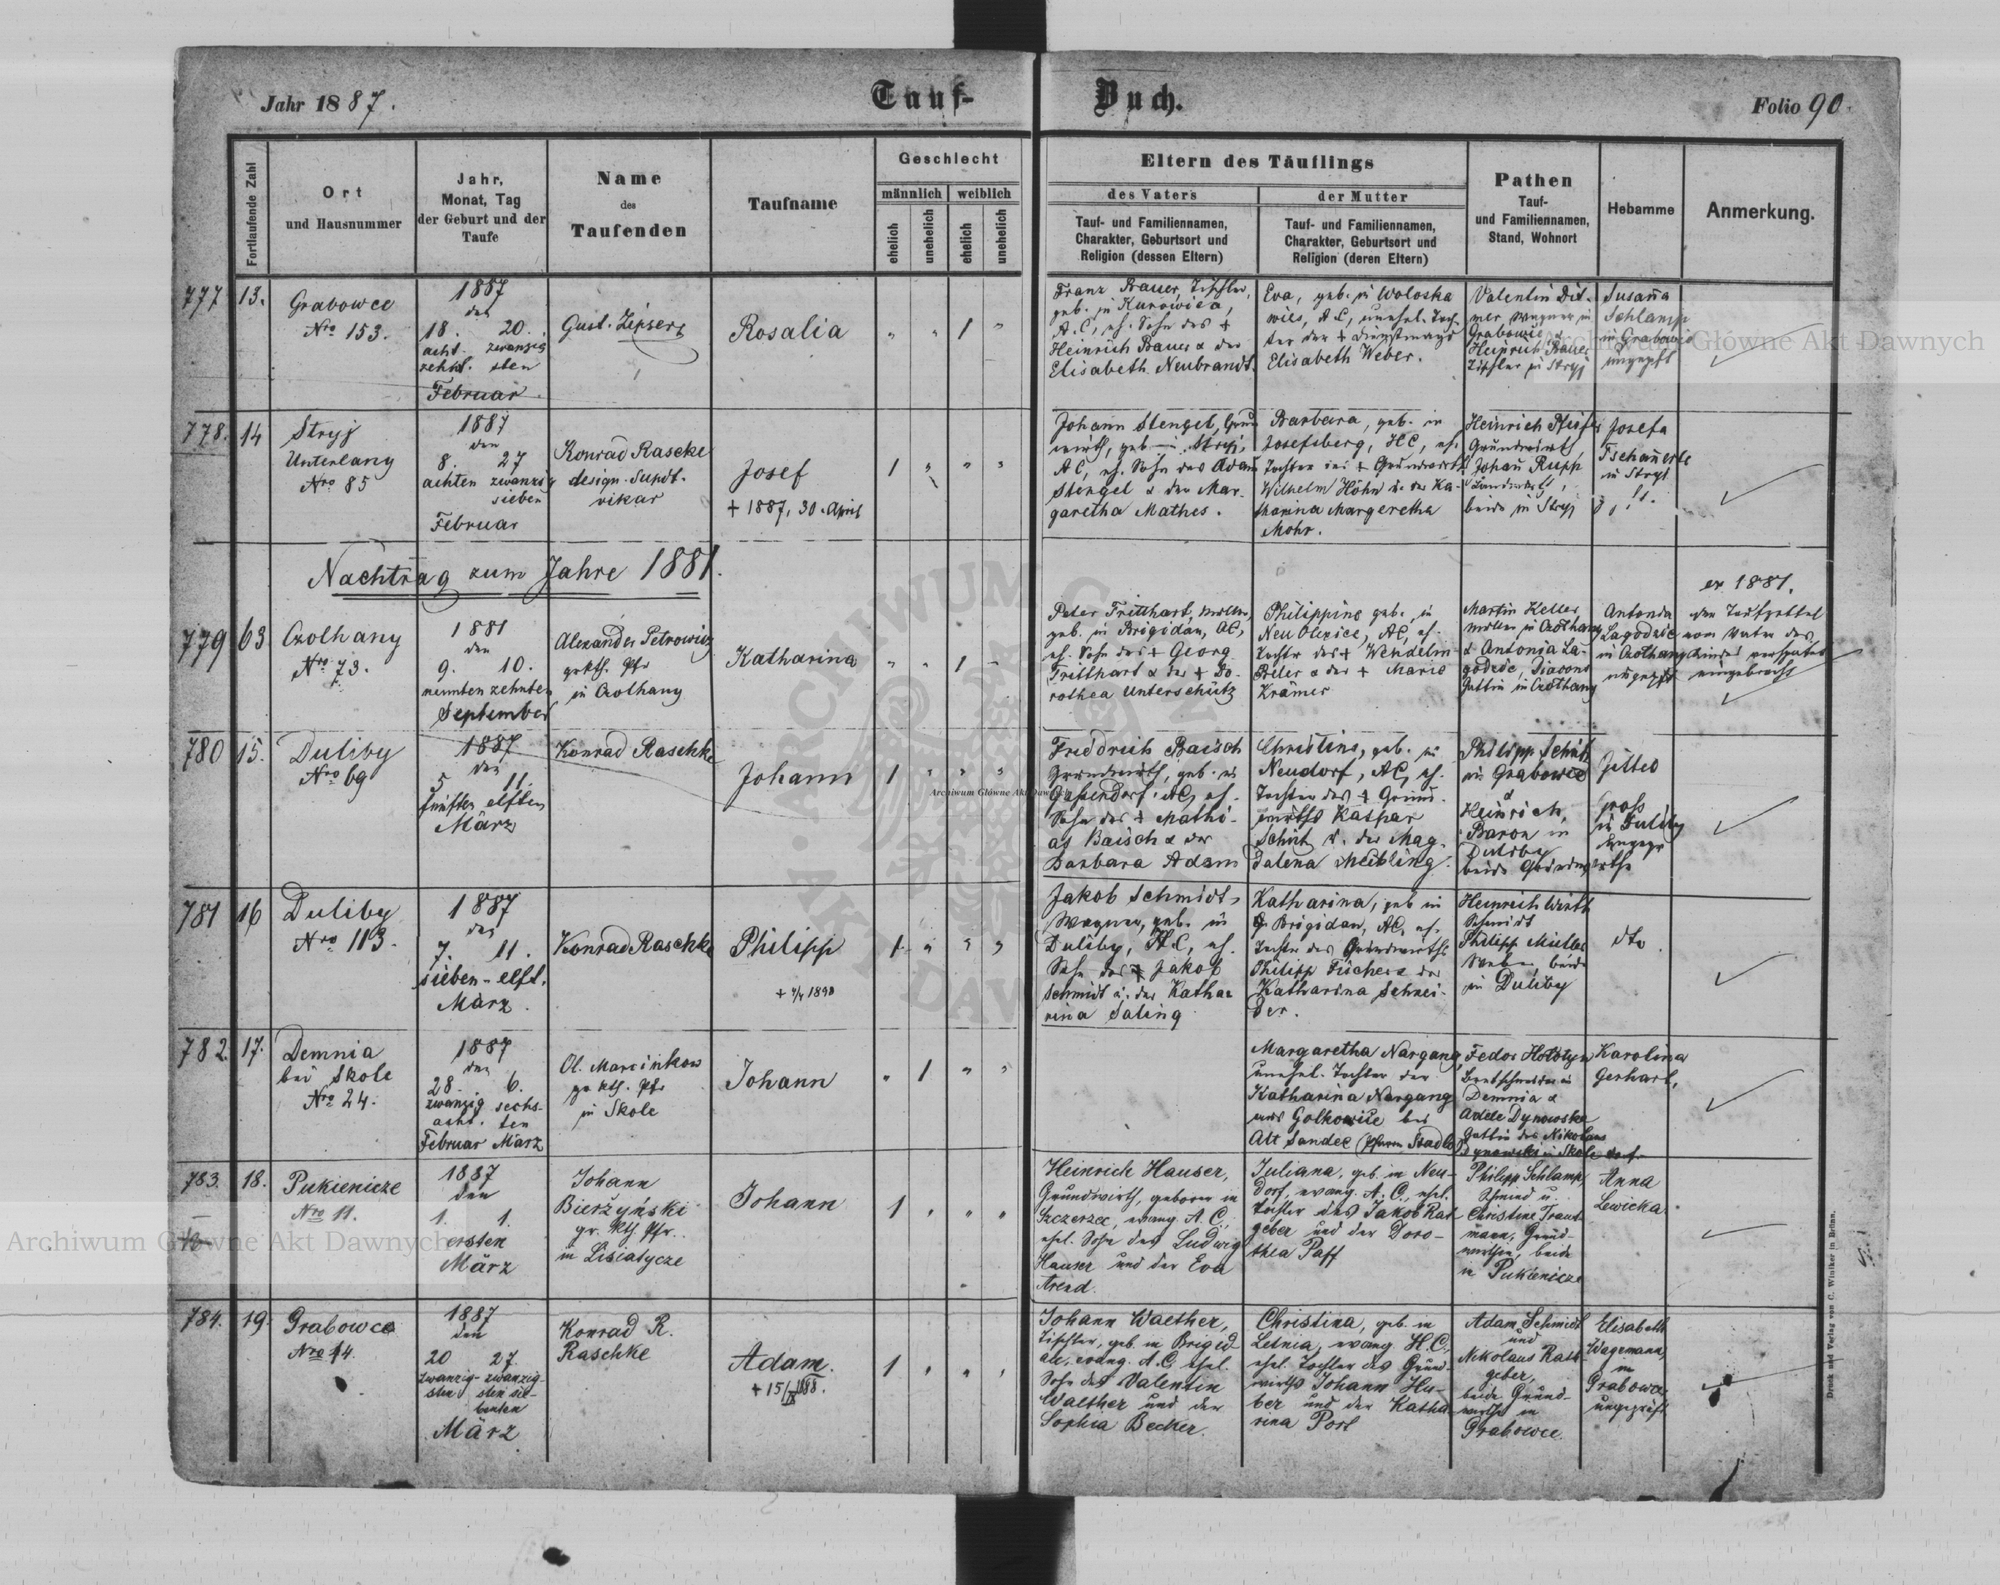 Jahr 1887.
Tauf-
Buch.
Folio 90.
Fortlaufende Zahl
Ort
und Hausnummer
Jahr,
Monat, Tag
der Geburt und der
Taufe
Name
des
Taufenden
Taufname
Geschlecht
männlich
weiblich
ehelich
unehelich
ehelich
unehelich
Eltern des Täuflings
des Vaters
Tauf- und Familiennamen,
Charakter, Geburtsort und
Religion (dessen Eltern)
der Mutter
Tauf- und Familiennamen,
Charakter, Geburtsort und
Religion (deren Eltern)
Pathen
Tauf-
und Familiennamen,
Stand, Wohnort
Hebamme
Anmerkung.
777
13.
Grabowce
Nro 153.
1887
den
18. 20.
acht- zwanzig
zehnt. sten
Februar.
Gust. Zipser
Rosalia
" " 1 "
Franz Bauer, Tischler,
geb. in Kurowice,
A.C., eh. Sohn des +
Heinrich Bauer & der
Elisabeth Neubrandt.
Eva, geb. in Woloska
wies, AC, unehel. Toch-
ter der + Dienstmagd
Elisabeth Weber.
Valentin Dit-
mer Wagner in
Grabowce &
Heinrich Bauer
Tischler in Stryj
Susanna
Schlamp
in Grabowce
ungeprft
778.
14
Stryj
Unterlany
Nro 85
1887
den
8. 27
achten zwanzig
sieben
Februar
Konrad Raschke
design. Supdt-
vikar
Josef
+ 1887, 30. April
1 " " "
Johann Stengel, Grund
wirth, geb. in Stryj,
AC, eh. Sohn des Adam
Stengel & der Mar-
garetha Mathes.
Barbara, geb. in
Josefsberg, HC, eh.
Tochter des + Grundwirths
Wilhelm Höhn u. der Ka-
tharina Margeretha
Mohr.
Heinrich Pfeifer
Grundwirth,
Johann Rupp
Landwirth,
beide in Stryj
Josefa
in Stryj
Nachtrag zum Jahre 1881.
779
63
Czolhany
Nro 73.
1881
den
9. 10.
neunten zehnten
September
Alexander Petrowicz
gr. kth. Pfr
in Czolhany
Katharina
" " 1 "
Peter Tritthart, Müller,
geb. in Brigidau, AC,
eh. Sohn des + Georg
Tritthart & der + Do-
rothea Unterschütz
Philippine geb. in
Neu Olexice, AC, eh.
Tochter des + Wendelin
& der + Maria
Krämer
Martin Keller
Müller in Czolhany
& Antonia La-
godzic, Diacons
Gattin in Czolhany
Antonia
Lagodzic
in Czolhany
ungeprft
ex 1881.
vom Vater des
Kindes verspätet
eingebracht
780
15.
Duliby
Nro 69
1887
den
5 11.
fünften elften
März
Konrad Raschke
Johann
1 " " "
Friedrich Baisch
Grundwirth, geb. in
Gassendorf, AC, eh.
Sohn des + Mathi-
as Baisch & der
Barbara Adam
Christine, geb. in
Neudorf, AC, eh.
Tochter des + Grund-
wirths Kaspar
Schütz u. der Mag-
dalena Meibling.
Philipp Schütz
in Grabowce
&
Heinrich
Baron in
Duliby
beide Grundwirthe
Gross
in Duliby
781
16
Duliby
Nro 113.
1887
den
7. 11.
sieben- elft.
März.
Konrad Raschke
Philipp
1 " " "
Jakob Schmidt,
Wagner, geb. in
Duliby, HC, eh.
Sohn des + Jakob
Schmidt u. der Katha
rina Saling
Katharina, geb in
Brigidau, AC, eh.
Tochter des Grundwirths
Philipp Fischer & der
Katharina Schnei-
der.
Heinrich Wirth
Schmidt
Philipp Müller
Weber, beide
in Duliby
dto.
782.
17.
Demnia
bei Skole
Nro 24.
1887
den
28. 6.
zwanzig sechs-
acht. ten
Februar März
Ol. Marcinkow
gr. kth. Pfr
in Skole
Johann
" 1 " "
Margaretha Nargang,
unehel. Tochter der
Katharina Nargang
aus Golkowice bei
Alt Sandec (Pfarre Stadlo)
Brettschneider in
Demnia &
Adele Dynowska
Gattin des Nikolaus
Dynowski in Skole
Karolina
Gerhart,
783.
18.
Pukienicze
Nro 11.
1887
den
1. 1.
ersten
März
Johann
Bierżyński
gr. kth. Pfr.
in Lisiatycze
Johann
1 " " "
Heinrich Hauser,
Grundwirth, geboren in
Szczerzec, evang. A.C.,
ehel. Sohn des Ludwig
Hauser und der Eva
Arend.
Juliana, geb. in Neu-
dorf, evang. A.C., ehel.
Tochter des Jakob Rat
geber und der Doro-
thea Paff
Philipp Schlamp,
Schmied u.
Christine Traut
mann, Grund-
wirthin, beide
in Pukienicze
Anna
Lewicka.
784.
19.
Grabowce
Nro 14.
1887
den
20 27.
zwanzig- zwanzig-
sten sten sie-
benten
März
Konrad R.
Raschke
Adam.
1 " " "
Johann Walther,
Tischler, geb. in Brigid
au, evang. A.C. ehel.
Sohn des Valentin
Walther und der
Sophia Becker.
Christina, geb. in
Letnia, evang. H.C.,
ehel. Tochter des Grund-
wirths Johann Hu-
ber und der Katha
rina Port
Adam Schmidt
und
Nikolaus Rath-
geber,
beide Grund-
wirthe in
Grabowce.
Elisabeth
Wagemann,
in
Grabowce
ungeprüft
Druck und Verlag von C. Winiker in Brünn.
Archiwum Główne Akt Dawnych
Archiwum Główne Akt Dawnych
Archiwum Główne Akt Dawnych